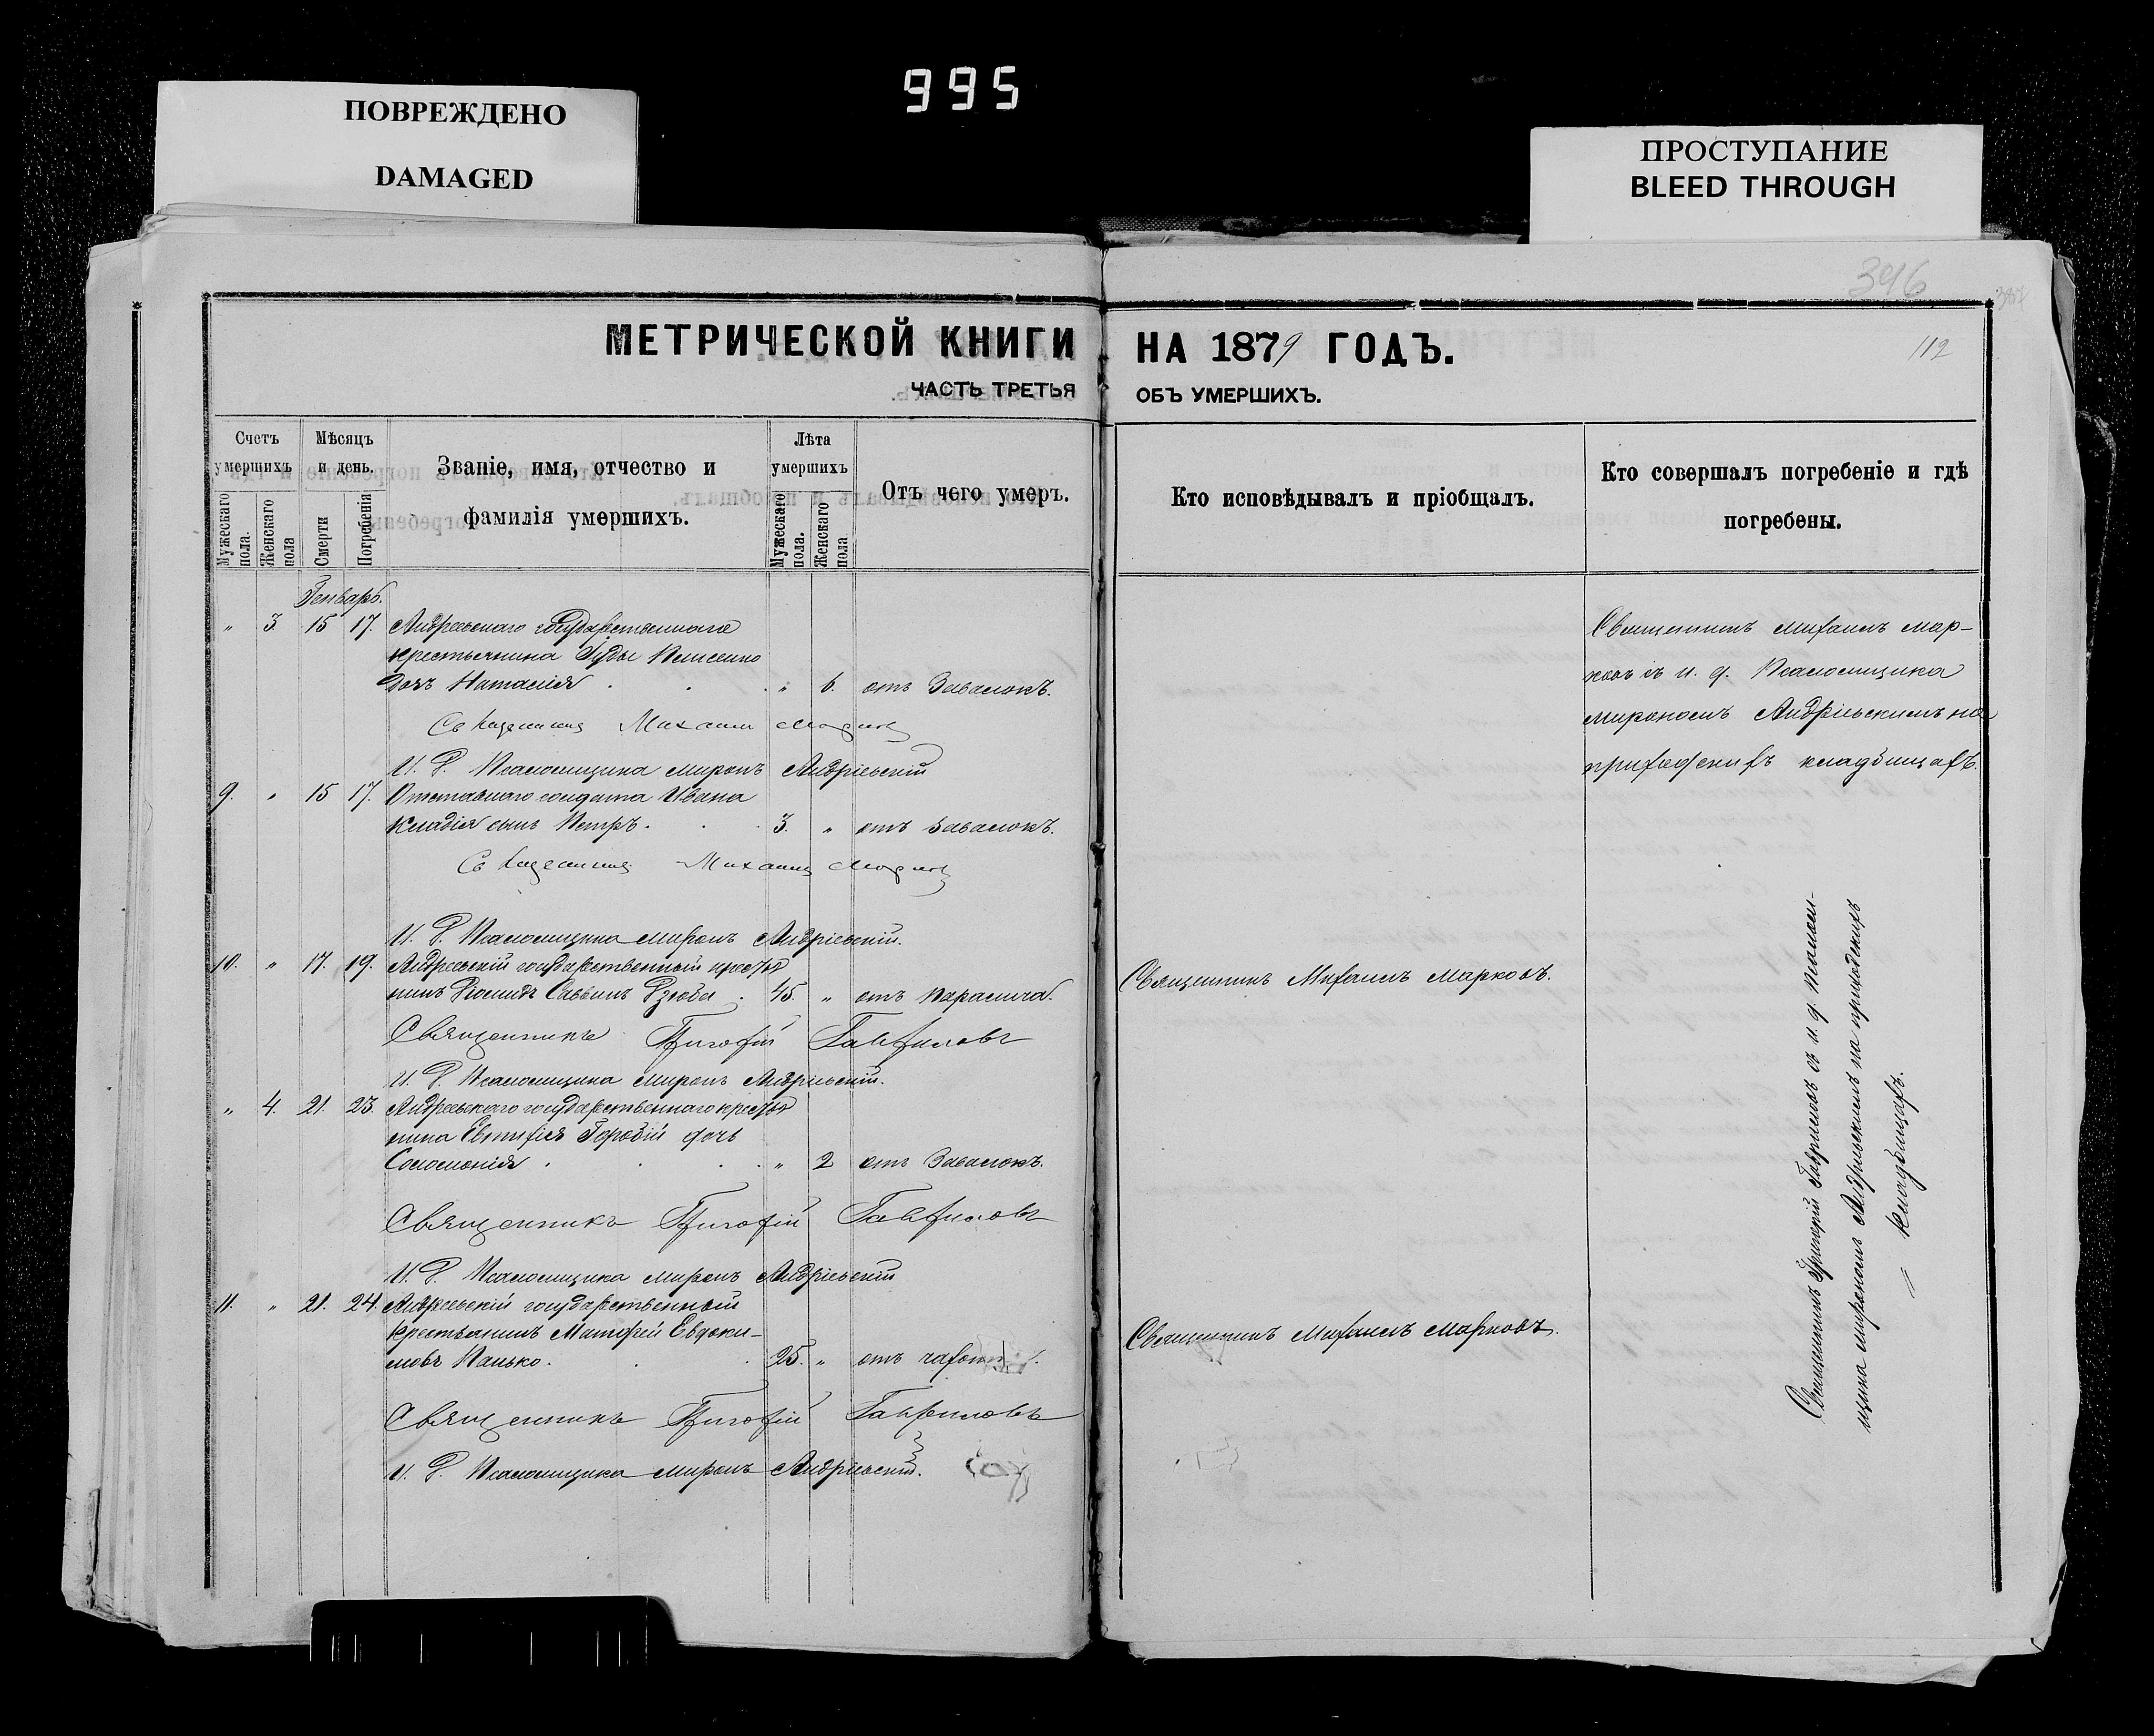 995
ПОВРЕЖДЕНО
DAMAGED
ПРОСТУПАНИЕ
BLEED THROUGH
396
112
МЕТРИЧЕСКОЙ КНИГИ НА 1879 ГОДЪ.
ЧАСТЬ ТРЕТЬЯ ОБЪ УМЕРШИХЪ.
Счетъ умершихъ
Мужескаго пола.
Женскаго пола
Мѣсяцъ и день.
Смерти
Погребенія
Званіе, имя, отчество и
фамилія умершихъ.
Лѣта умершихъ
Мужескаго пола.
Женскаго пола
Отъ чего умеръ.
Кто исповѣдывалъ и пріобщалъ.
Кто совершалъ погребеніе и гдѣ
погребены.
Генварь.
" 3. 15 17. Андреевскаго государственнаго
крестьянина
дочь Наталія " 6. отъ Заволокъ.
Священникъ Михаилъ Марковъ
И. Д. Псаломщика Миронъ Андріевскій
9. " 15 17. Отставнаго солдата Ивана
сынъ Петръ. 3. " отъ Заволокъ.
Священникъ Михаилъ Марковъ
И. Д. Псаломщика Миронъ Андріевскій.
10. " 17. 19. Андреевскій государственный крестья
нинъ Саввинъ Дзюба 45. " отъ Паралича.
Священникъ Григорій Гавриловъ
И. Д. Псаломщика Миронъ Андріевскій.
" 4. 21. 23. Андреевскаго государственнаго крестья
нина Евтифія дочь
Соломонія " 2 отъ Заволокъ.
Священникъ Григорій Гавриловъ
И. Д. Псаломщика Миронъ Андріевскій
11. " 21. 24. Андреевскій государственный
крестьянинъ Матфей Евдоки-
мовъ Панько. 25. " отъ
Священникъ Григорій Гавриловъ
И. Д. Псаломщика Миронъ Андріевскій.
Священникъ Михаилъ Марковъ.
Священникъ Михаилъ Марковъ.
Священникъ Михаилъ Мар-
ковъ съ и. д. Псаломщика
Мирономъ Андріевскимъ на
приходскихъ кладбищахъ.
Священникъ Григорій Гавриловъ съ и. д. Псалом-
щика Мирономъ Андріевскимъ на приходскихъ
кладбищахъ.